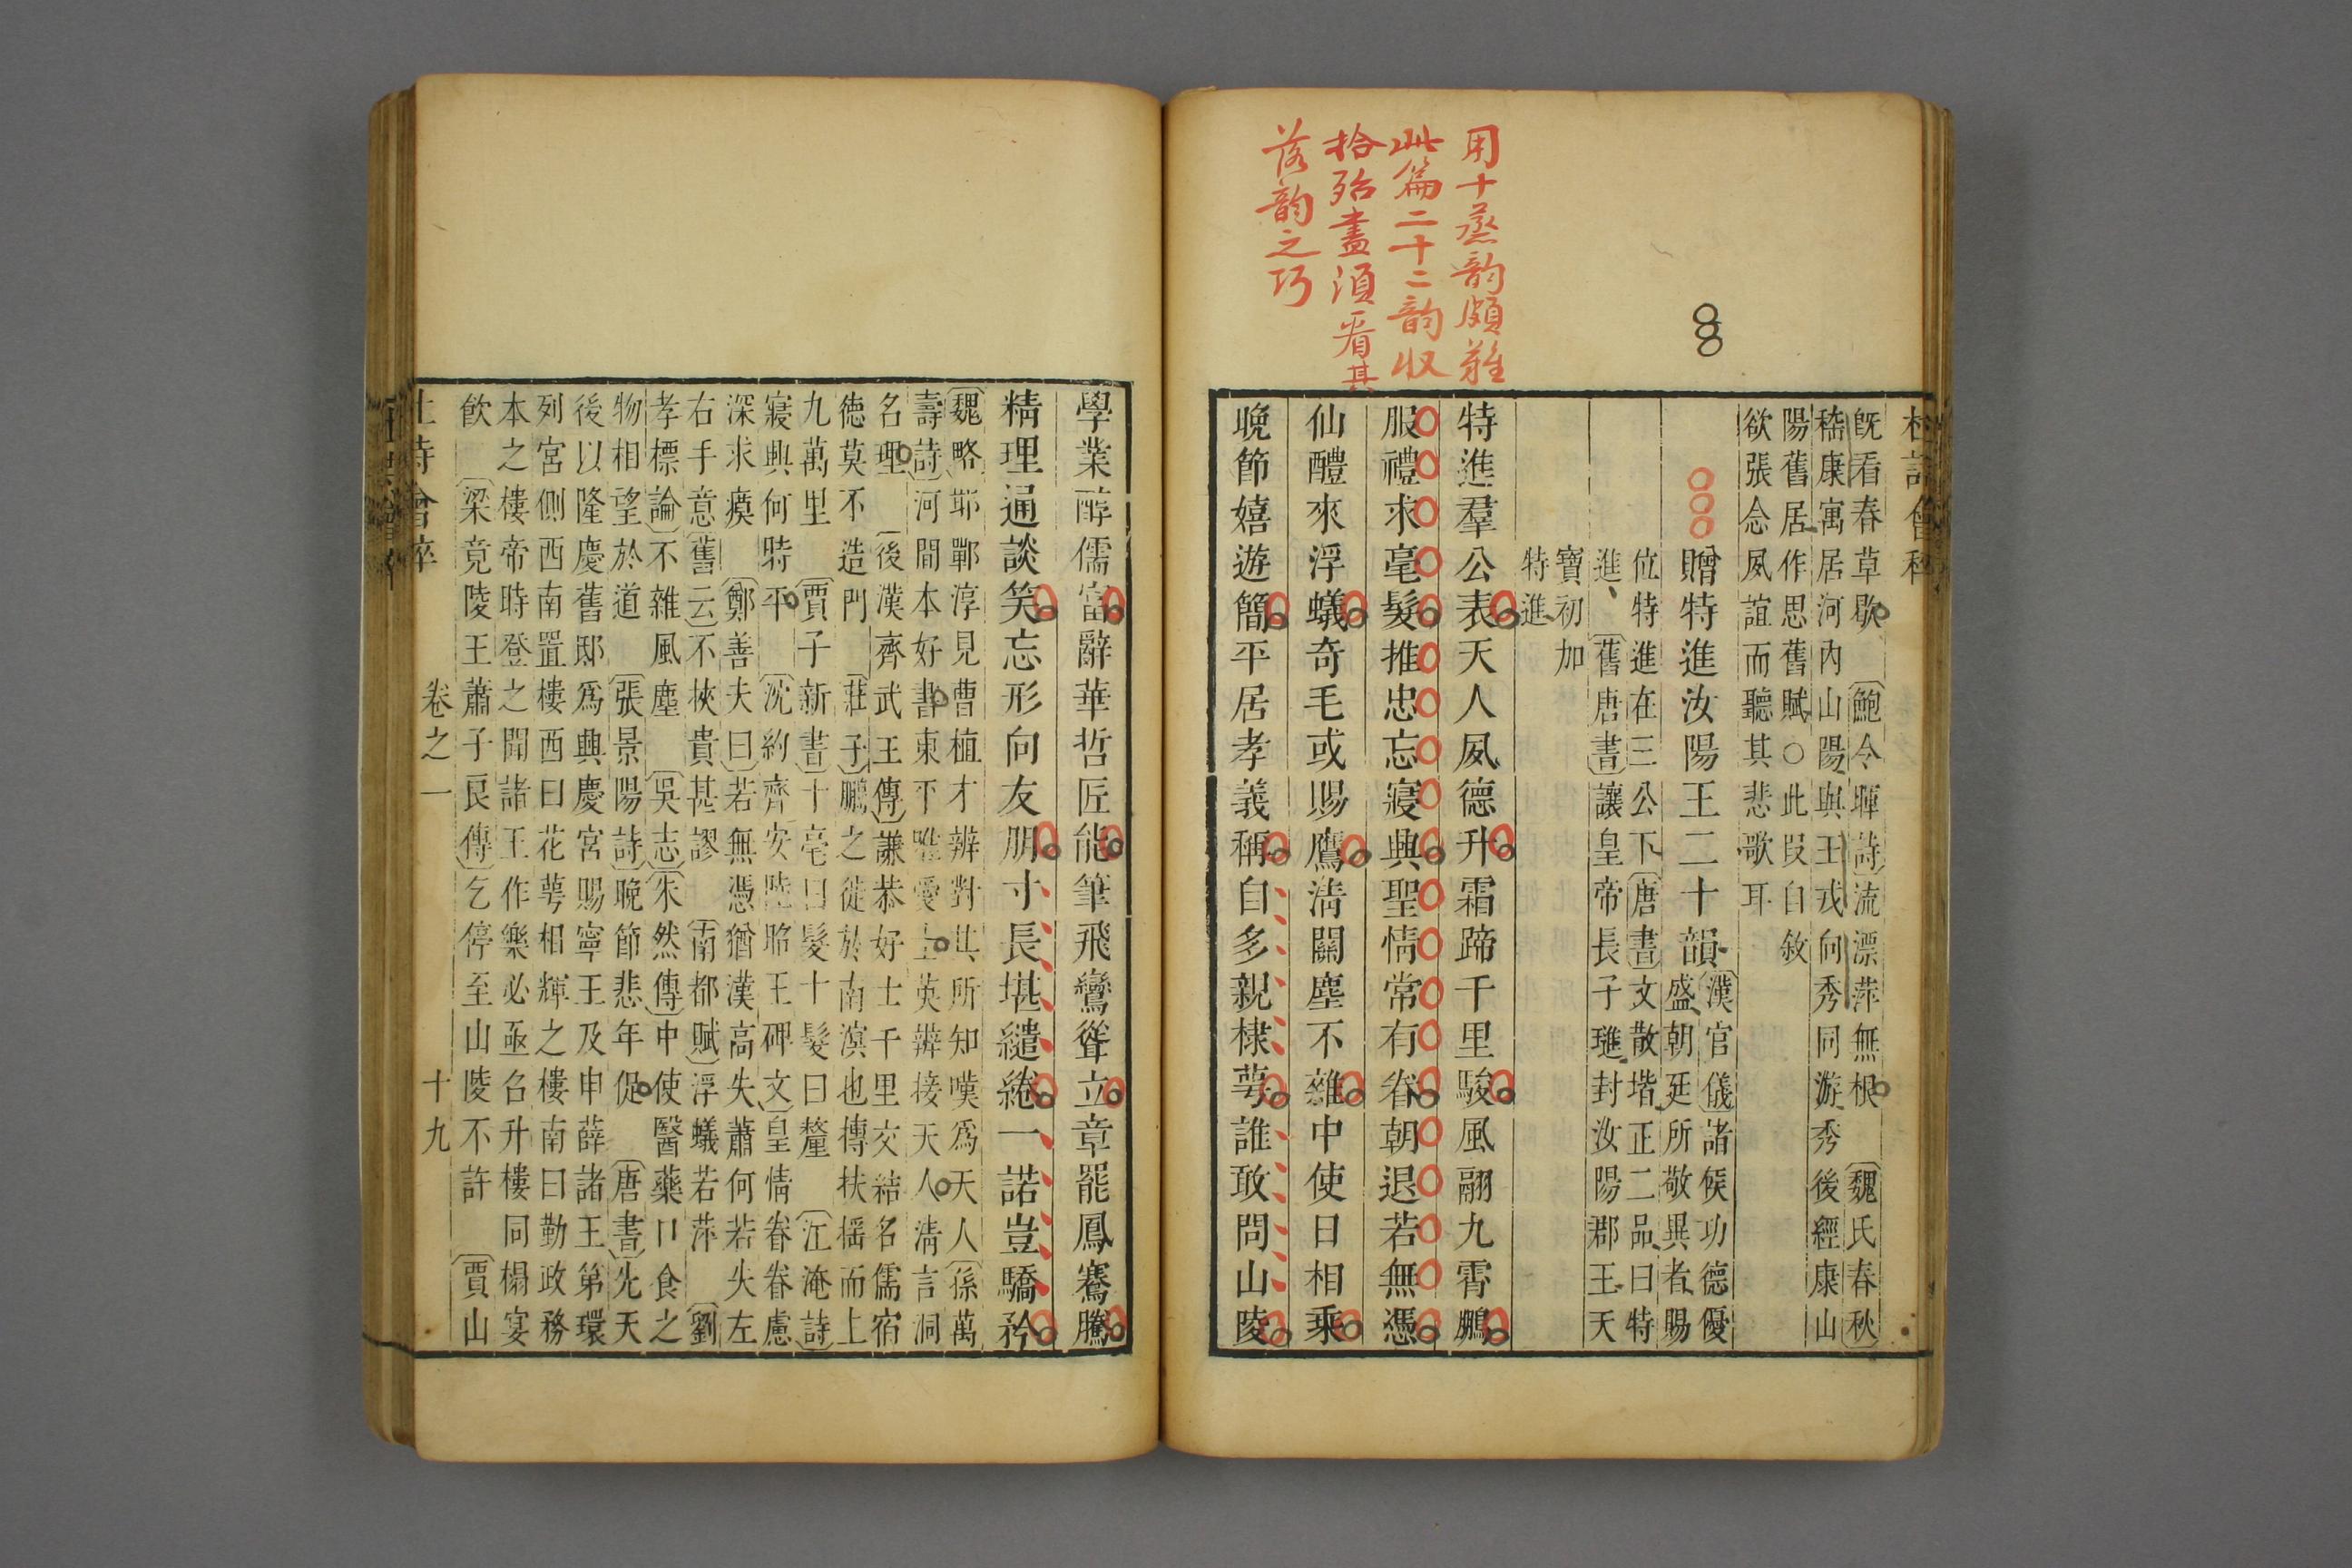 用十蒸韵頗難
此篇二十二韵収
拾殆盡須看其
落韵之巧
杜詩會稡
旣看春草歇〔鮑令暉詩〕流漂萍無根〔魏氏春秋〕
嵇康寓居河內山陽與王戎向秀同游秀後經康山
陽舊居作思舊賦○此段自敘
欲張念夙誼而聽其悲歌耳
贈特進汝陽王二十韻
〔漢官儀〕諸侯功德優
盛朝廷所敬異者賜
位特進在三公下〔唐書〕文散堦正二品曰特
進〔舊唐書〕讓皇帝長子璡封汝陽郡王天
寶初加
特進
特進羣公表天人夙德升霜蹄千里駿風翮九霄鵬
服禮求毫髮推忠忘寢興聖情常有眷朝退若無憑
仙醴來浮蟻奇毛或賜鷹淸關塵不雜中使日相乘
晚節嬉遊簡平居孝義稱自多親棣萼誰敢問山陵
學業醇儒富辭華哲匠能筆飛鸞聳立章罷鳳騫騰
精理通談笑忘形向友朋寸長堪繾綣一諾豈驕矜
〔魏略〕邯鄲淳見曹植才辨對其所知嘆爲天人〔孫萬
壽詩〕河間本好書東平唯愛士英辨接天人淸言洞
名理〔後漢齊武王傳〕謙恭好士千里交結名儒宿
德莫不造門〔莊子〕鵬之徙於南溟也摶扶搖而上
九萬里〔賈子新書〕十毫曰髮十髮曰釐〔江淹詩〕
寢興何時平〔沈約齊安陸昭王碑文〕皇情眷眷慮
深求瘼〔鄭善夫曰〕若無憑猶漢高失蕭何若失左
右手意〔舊云〕不挾貴甚謬〔南都賦〕浮蟻若萍〔劉
孝標論〕不雜風塵〔吳志〕〔朱然傳〕中使醫藥口食之
物相望於道〔張景陽詩〕晚節悲年促〔唐書〕先天
後以隆慶舊邸爲興慶宮賜寧王及申薛諸王第環
列宮側西南置樓西曰花萼相輝之樓南曰勤政務
本之樓帝時登之聞諸王作樂必亟召升樓同榻宴
飮〔梁竟陵王蕭子良傳〕乞停至山陵不許〔賈山
杜詩會稡 卷之一 十九